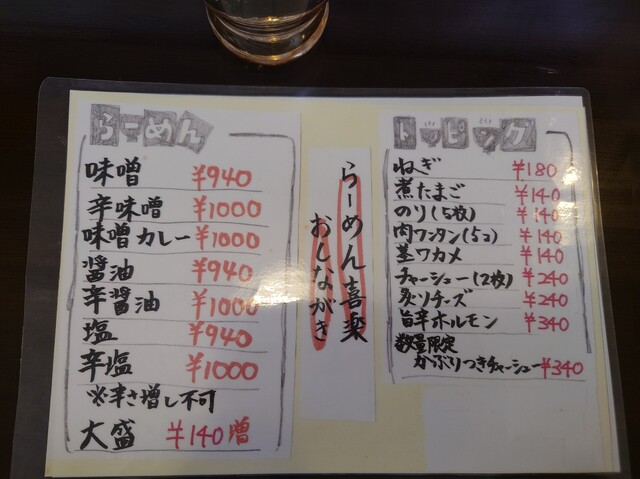 らーめん
味噌 ¥940
辛味噌 ¥1000
味噌カレー ¥1000
醤油 ¥940
辛醤油 ¥1000
塩 ¥940
辛塩 ¥1000
※辛さ増し不可
大盛 ¥140増
らーめん喜楽
おしながき
トッピング
ねぎ ¥180
煮たまご ¥140
のり(5枚) ¥140
肉ワンタン(5コ) ¥140
茎ワカメ ¥140
チャーシュー(2枚) ¥240
炙りチーズ ¥240
旨辛ホルモン ¥340
数量限定
かぶりつきチャーシュー ¥340